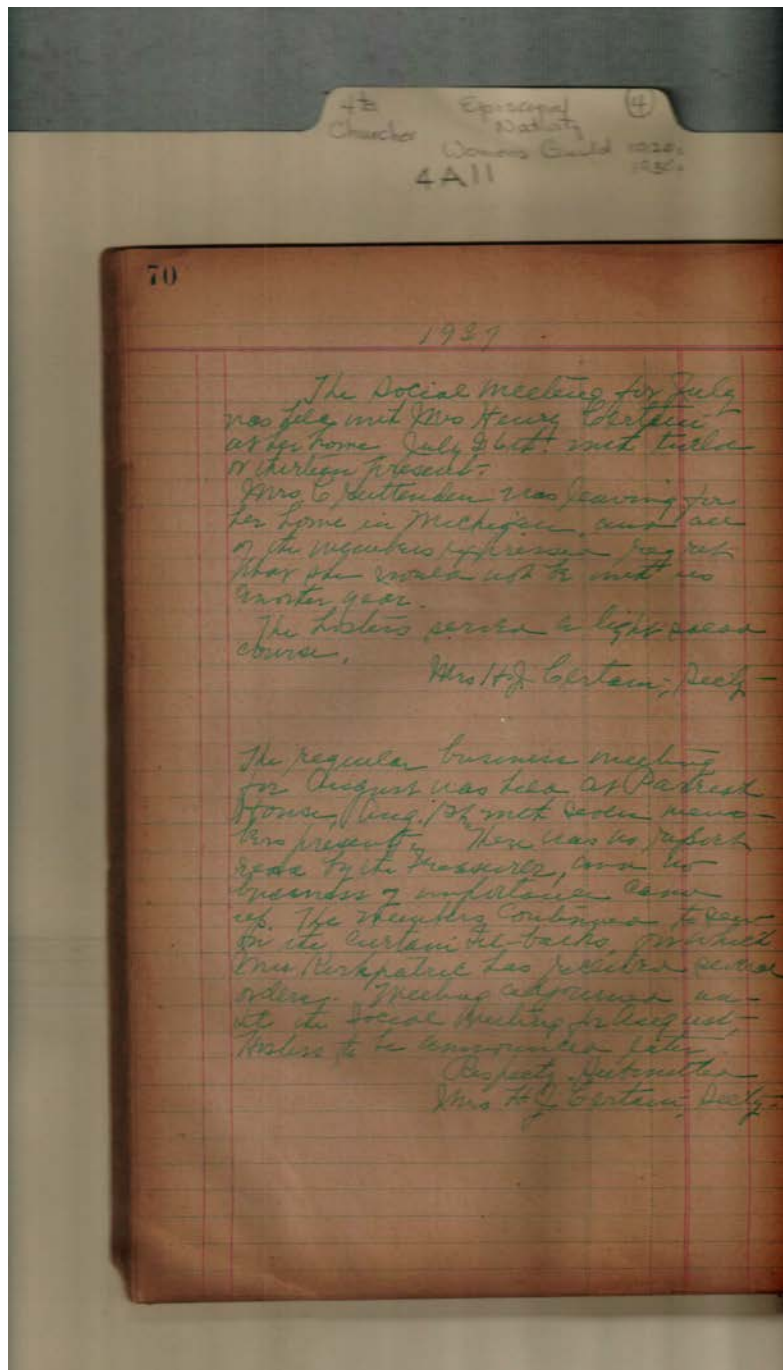 4th Episcopal 4
Churches Nativity
Womens Guild 1920s
1930s
4A11
70
1937
The Social Meeting for July
was held with Mrs Henry Certain
at her home July 26th. with twelve
or thirteen present.
Mrs Cruttenden was leaving for
her home in Michigan, and all
of the members expressed regret
that she would not be with us
another year.
The hostess served a light salad
course.
Mrs H.J. Certain, Secty-
The regular business meeting
for August was held at Parrish
House, Aug. with seven mem-
bers present. There was no report
read by the Treasurer, and no
business of importance came
up. The members continued to sew
on the curtain tie-backs, for which
Mrs. Kirkpatric has received several
orders. Meeting adjourned un-
til the Social Meeting for August-
Hostess to be announced later.
Respecty Submitted
Mrs H.J. Certain, Secty-